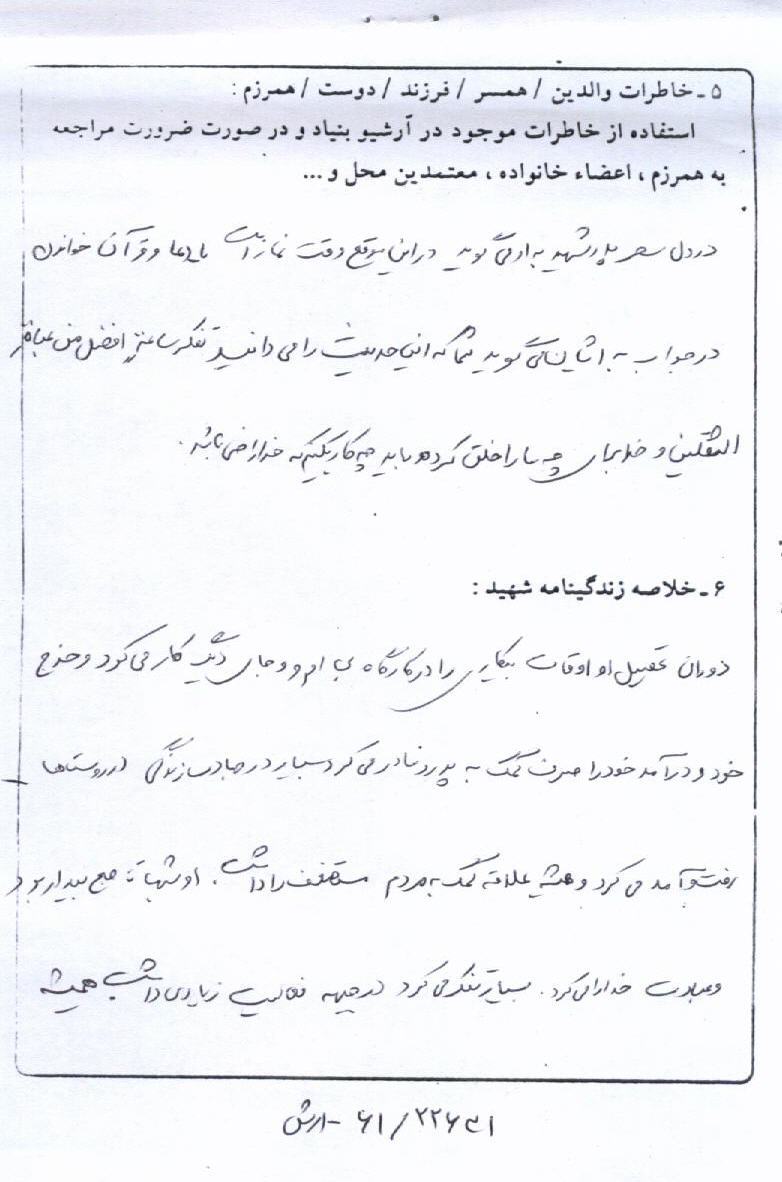 ۵ ـ خاطرات والدین / همسر / فرزند / دوست / همرزم :
استفاده از خاطرات موجود در آرشیو بنیاد و در صورت ضرورت مراجعه
به همرزم ، اعضاء خانواده ، معتمدین محل و ...
در دل سحر پدر شهید به او می گوید در این موقع وقت نماز است یا دعا و قرآن خواندن
در جواب به ایشان می گوید شما که این حدیث را می دانید تفکر ساعة افضل من عبادة
الثقلین و خدا برای چه ما را خلق کرده و باید چه کار بکنیم که خدا راضی باشد .
۶ ـ خلاصه زندگینامه شهید :
دوران تحصیل او اوقات بیکاری را در کارگاه و جای دیگر کار می کرد و خرج
خود و درآمد خود را صرف کمک به پدر و مادر می کرد بسیار در زندگی در روستاها
رفت و آمد می کرد و همیشه علاقه کمک به مردم مستضعف را داشت . او شبها تا صبح بیدار بود
و عبادت خدا را می کرد . بسیار تفکر می کرد در جبهه فعالیت زیادی داشت همیشه
۶۱/۲۲۶۴۱ - ارتش